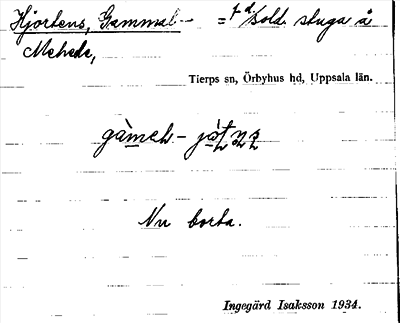 Hjortens, Gammal- = f. d. sold. stuga å
Mehede,
Tierps sn, Örbyhus hd, Uppsala län.
Nu borta.
Ingegärd Isaksson 1934.